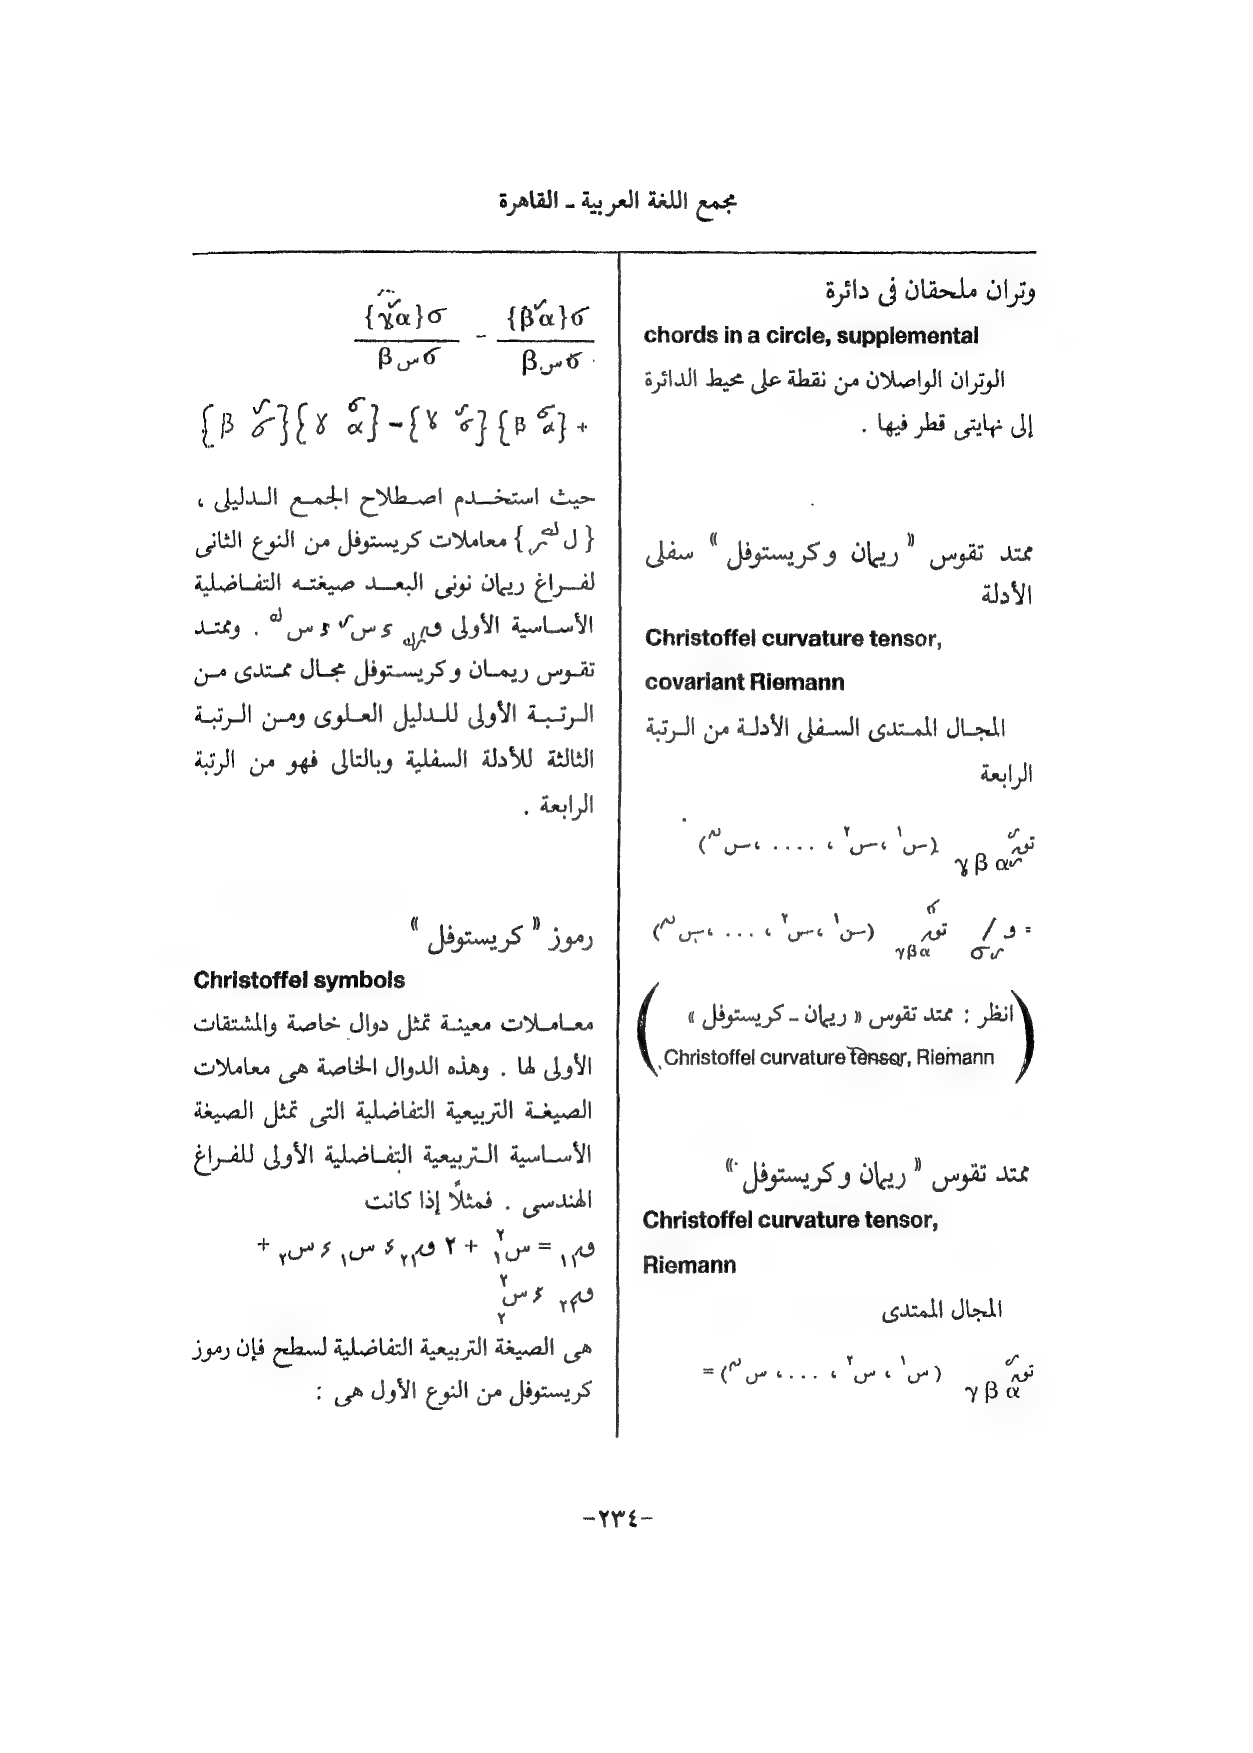 مجمع اللغة العربية ـ القاهرة
وتران ملحقان فى دائرة
chords in a circle, supplemental
الوتران الواصلان من نقطة على محيط الدائرة
إلى نهايتى قطر فيها .
ممتد تقوس « ريمان وكريستوفل » سفلى
الأدلة
Christoffel curvature tensor,
covariant Riemann
المجال الممتدى السفلى الأدلة من الرتبة
الرابعة
(س١ ،س٢ ، .... ،س
γ β α
= و /
(س١ ،س٢ ، ... ،س
γβα
انظر : ممتد تقوس « ريمان ـ كريستوفل »
Christoffel curvature tensor, Riemann
ممتد تقوس « ريمان وكريستوفل »
Christoffel curvature tensor,
Riemann
المجال الممتدى
(س١ ، س٢ ، ... ، س ) =
γ β α
حيث استخدم اصطلاح الجمع الدليلى ،
معاملات كريستوفل من النوع الثانى
لفراغ ريمان نونى البعد صيغته التفاضلية
الأساسية الأولى . وممتد
تقوس ريمان وكريستوفل مجال ممتدى من
الرتبة الأولى للدليل العلوى ومن الرتبة
الثالثة للأدلة السفلية وبالتالى فهو من الرتبة
الرابعة .
رموز « كريستوفل »
Christoffel symbols
معاملات معينة تمثل دوال خاصة والمشتقات
الأولى لها . وهذه الدوال الخاصة هى معاملات
الصيغة التربيعية التفاضلية التى تمثل الصيغة
الأساسية التربيعية التفاضلية الأولى للفراغ
الهندسى . فمثلًا إذا كانت
هى الصيغة التربيعية التفاضلية لسطح فإن رموز
كريستوفل من النوع الأول هى :
-٢٣٤-